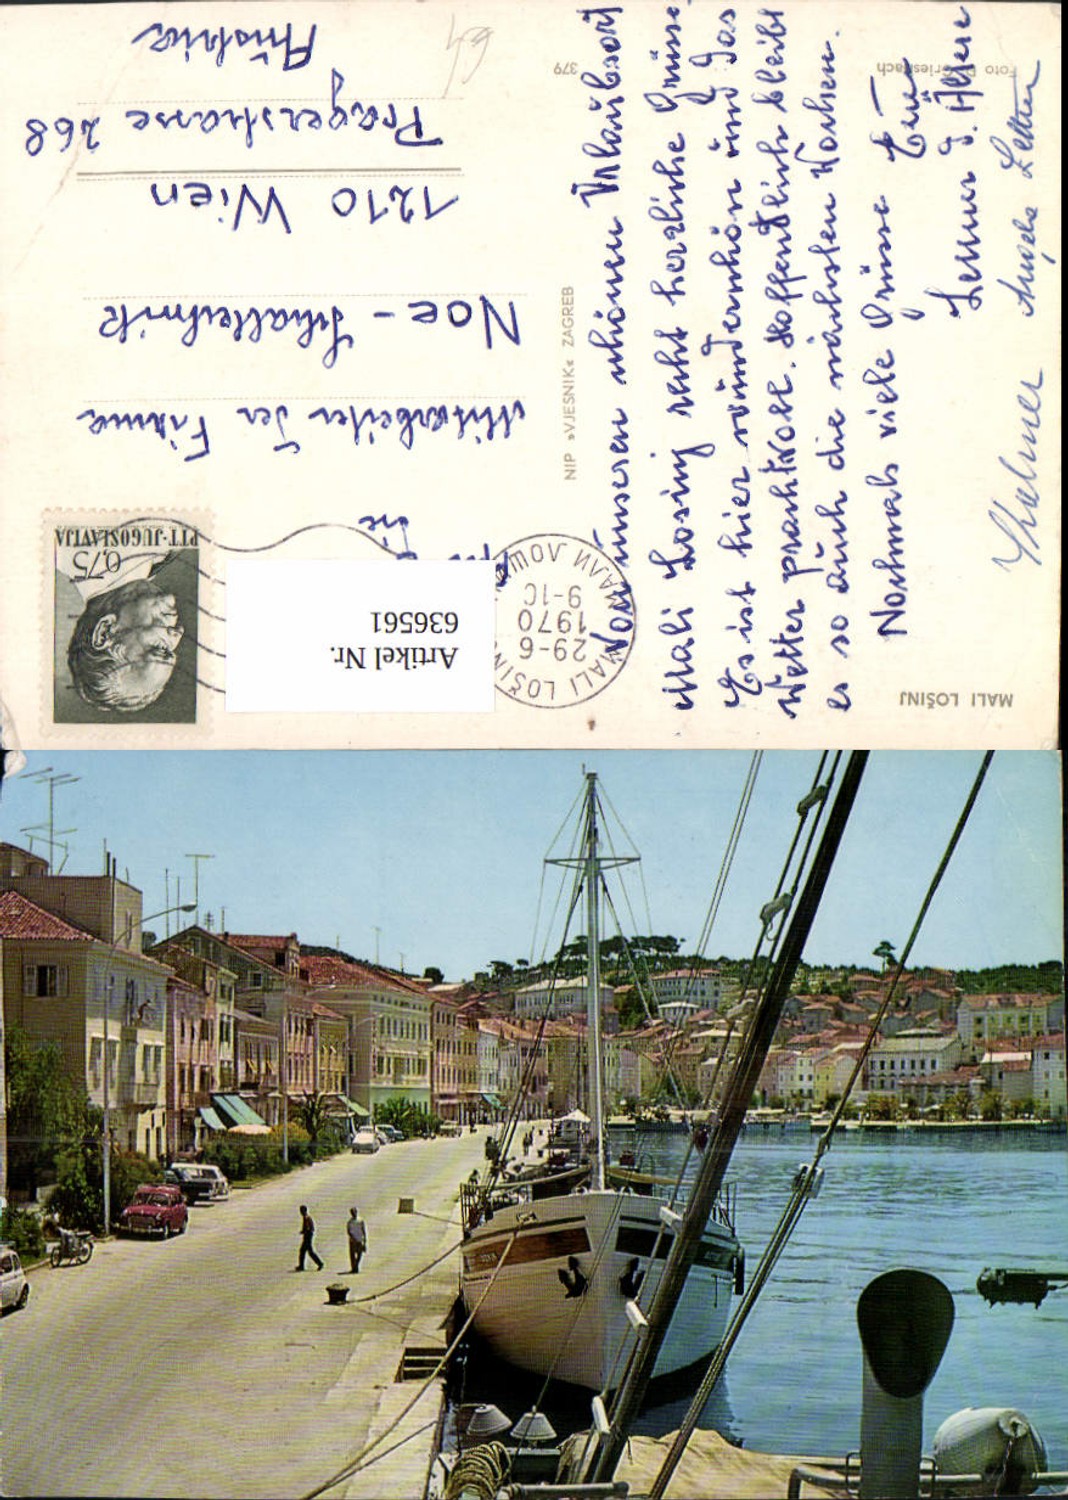 MALI LOŠINJ
Foto
379
NIP »VJESNIK« ZAGREB
Von unseren schönen Urlaubsort
Mali Losinj recht herzliche Grüsse.
Es ist hier wunderschön und das
Wetter prachtvoll. Hoffentlich bleibt
es so auch die nächsten Wochen.
Nochmals viele Grüsse Eure
PTT-JUGOSLAVIJA
0,75
MALI LOŠINJ
29-6
1970
9-10
Artikel Nr.
636561
die
Mitarbeiter der Firma
Noe - Schallschmitz
1210 Wien
Pragerstrasse 268
Austria